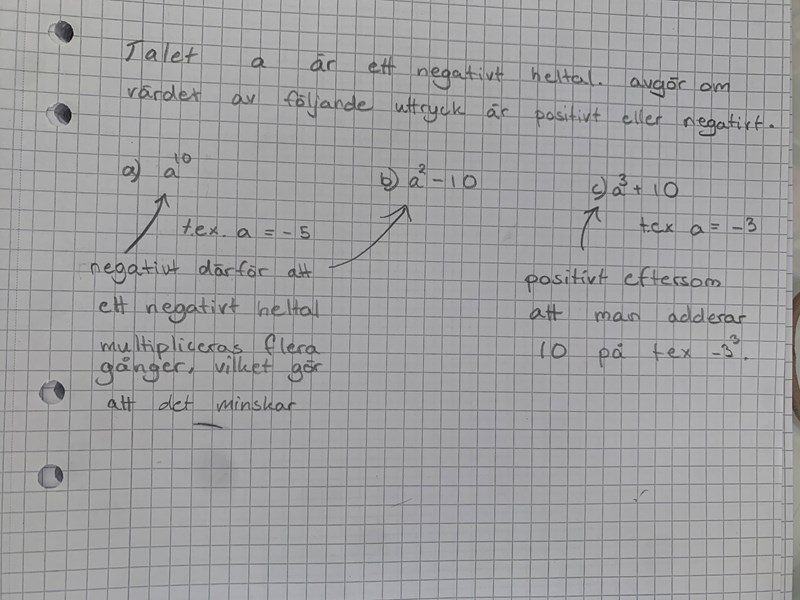 Talet a är ett negativt heltal. avgör om
värdet av följande uttryck är positivt eller negativt.
a) a¹⁰
b) a² - 10
c) a³ + 10
t.ex. a = -5
t.ex a = -3
negativt därför att
ett negativt heltal
multipliceras flera
gånger, vilket gör
att det minskar
positivt eftersom
att man adderar
10 på tex -3³.